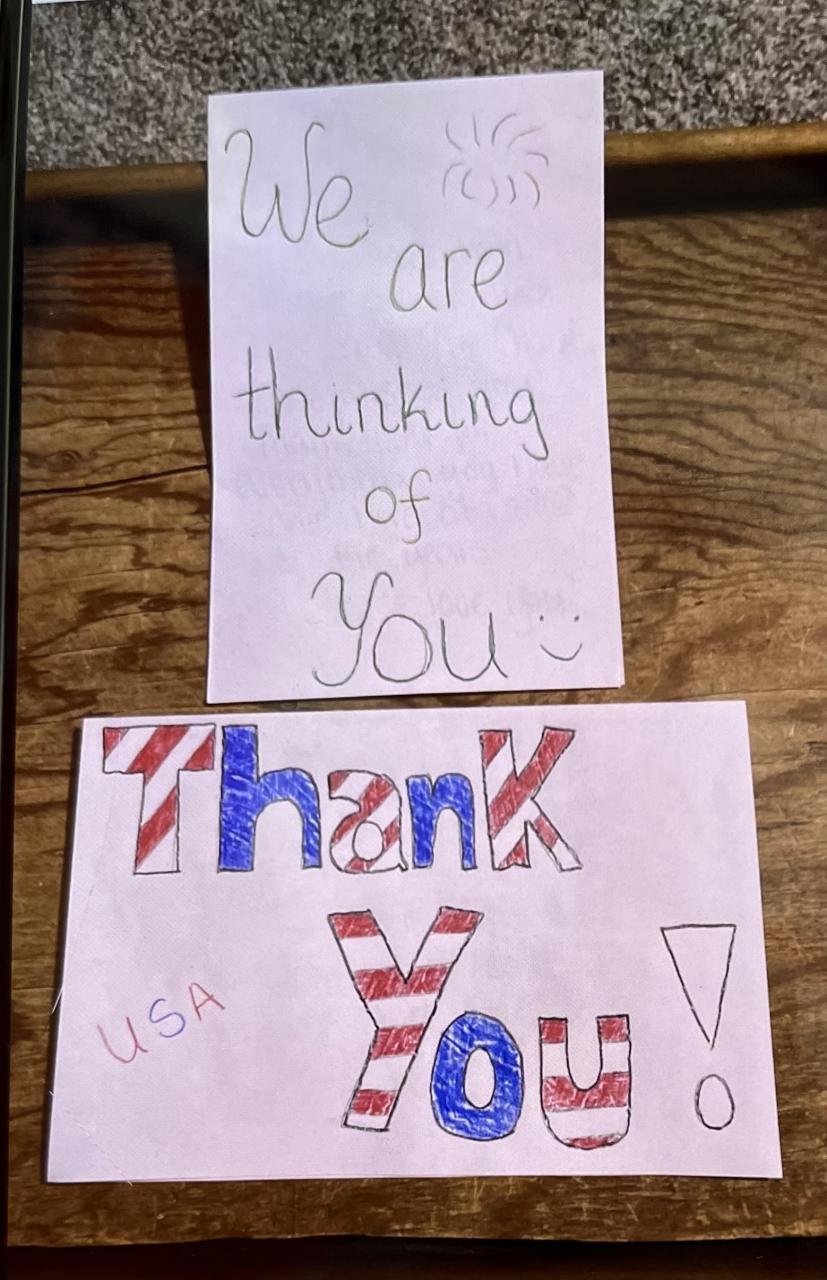 We
are
thinking
of
You :)
Thank
You!
USA